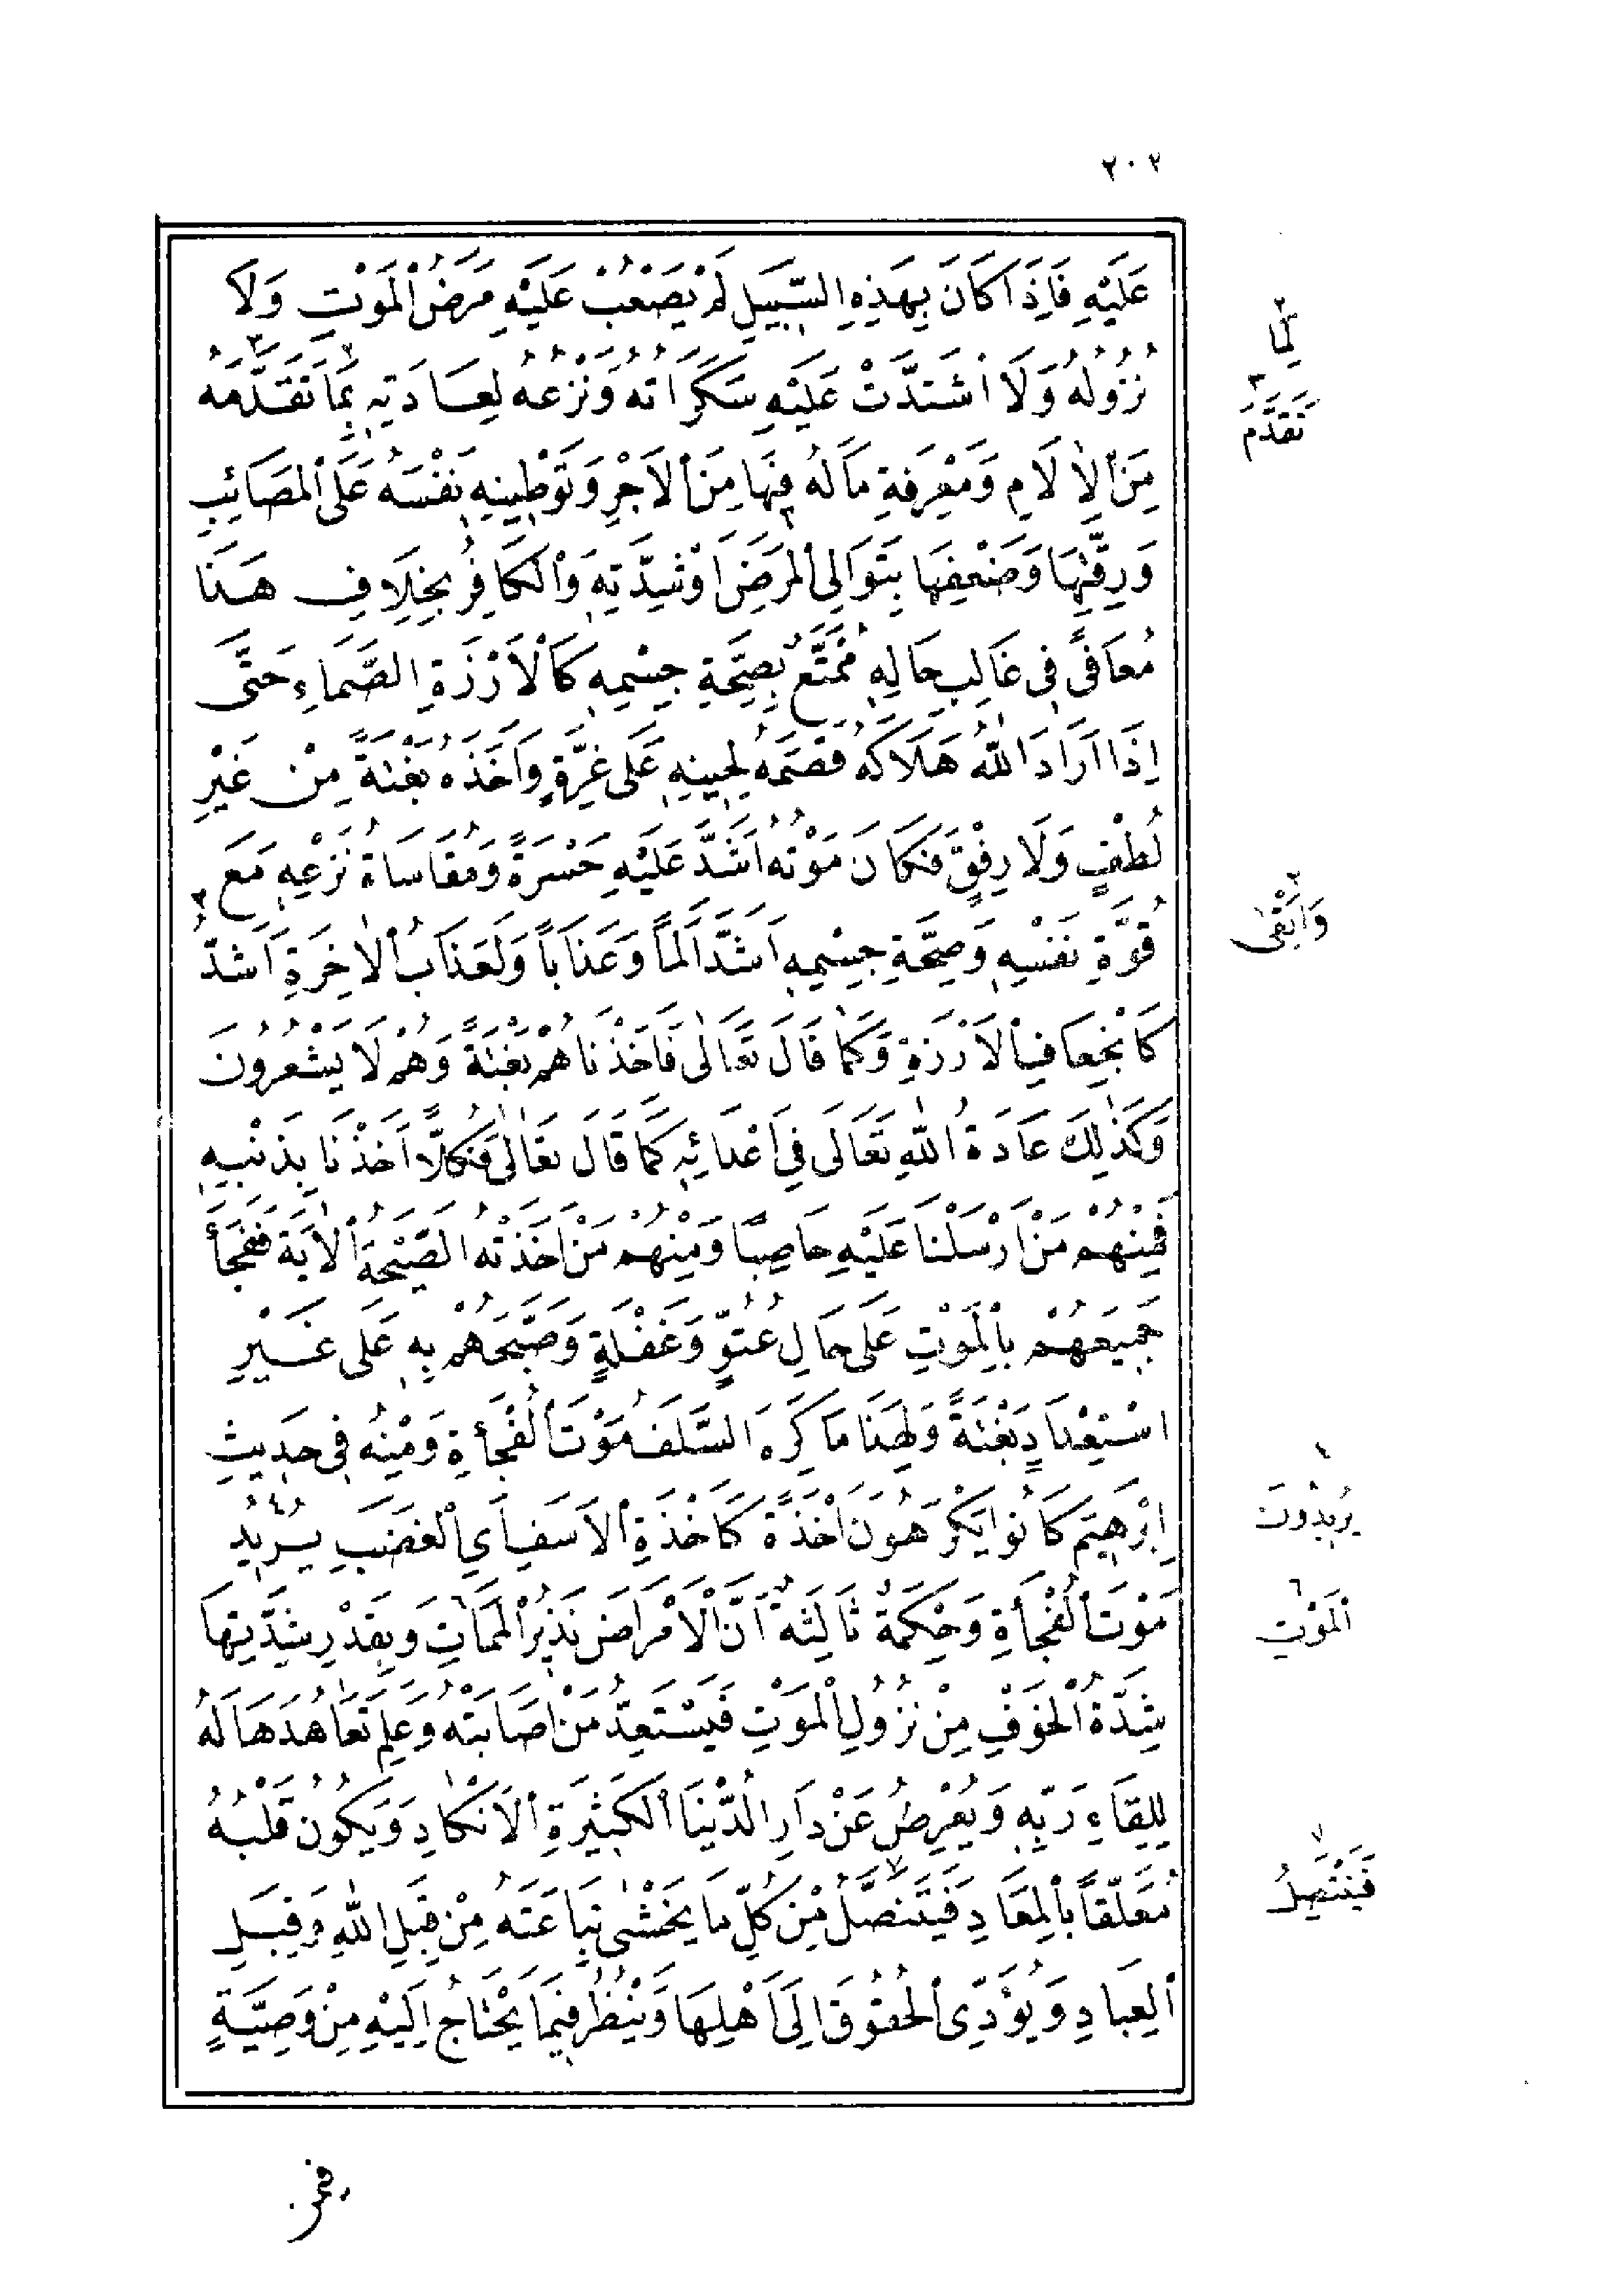 ٢٠٢
عَلَيْهِ فَاِذَا كَانَ بِهَذِهِ السَّبِيلِ لَمْ يَصْعُبْ عَلَيْهِ مَرَضُ الْمَوْتِ وَلَا
نُزُولُهُ وَلَا اشْتَدَّتْ عَلَيْهِ سَكَرَاتُهُ وَنَزْعُهُ لِعَادَتِهِ بِمَا تَقَدَّمَهُ
مِنَ الْاٰلَامِ وَمَعْرِفَةِ مَالَهُ فِيهَا مِنَ الْاَجْرِ وَتَوْطِينِهِ نَفْسَهُ عَلَى الْمَصَائِبِ
وَرِقَّتِهَا وَضَعْفِهَا بِتَوَالِى الْمَرَضِ اَوْ شِدَّتِهِ وَالْكَافِرُ بِخِلَافِ هَذَا
مُعَافًى فِى غَالِبِ حَالِهِ مُمَتَّعٌ بِصِحَّةِ جِسْمِهِ كَالْاَرْزَةِ الصَّمَاءِ حَتَّى
اِذَا اَرَادَ اللّٰهُ هَلَاكَهُ قَصَمَهُ لِحِينِهِ عَلَى غِرَّةٍ وَاَخَذَهُ بَغْتَةً مِنْ غَيْرِ
لُطْفٍ وَلَا رِفْقٍ فَكَانَ مَوْتُهُ اَشَدَّ عَلَيْهِ حَسْرَةً وَمُقَاسَاةُ نَزْعِهِ مَعَ
قُوَّةِ نَفْسِهِ وَصِحَّةِ جِسْمِهِ اَشَدَّ اَلَمًا وَعَذَابًا وَلَعَذَابُ الْاٰخِرَةِ اَشَدُّ
كَانْجِعَافِ الْاَرْزَةِ وَكَمَا قَالَ تَعَالٰى فَاَخَذْنَاهُمْ بَغْتَةً وَهُمْ لَا يَشْعُرُونَ
وَكَذٰلِكَ عَادَةُ اللّٰهِ تَعَالَى فِى اَعْدَائِهِ كَمَا قَالَ تَعَالٰى فَكُلًّا اَخَذْنَا بِذَنْبِهِ
فَمِنْهُمْ مَنْ اَرْسَلْنَا عَلَيْهِ حَاصِبًا وَمِنْهُمْ مَنْ اَخَذَتْهُ الصَّيْحَةُ الْاٰيَةَ فَفَجَأَ
جَمِيعَهُمْ بِالْمَوْتِ عَلَى حَالِ عُتُوٍّ وَغَفْلَةٍ وَصَبَّحَهُمْ بِهِ عَلَى غَيْرِ
اسْتِعْدَادٍ بَغْتَةً وَلِهَذَا مَا كَرِهَ السَّلَفُ مَوْتَ الْفَجْأَةِ وَمِنْهُ فِى حَدِيثِ
اِبْرٰهِيمَ كَانُوا يَكْرَهُونَ اَخْذَةً كَاَخْذَةِ الْاَسَفِ اَيِ الْغَضَبِ يُرِيدُ
مَوْتَ الْفَجْأَةِ وَحِكْمَةٌ ثَالِثَةٌ اَنَّ الْاَمْرَاضَ نَذِيرُ الْمَمَاتِ وَبِقَدْرِ شِدَّتِهَا
شِدَّةُ الْخَوْفِ مِنْ نُزُولِ الْمَوْتِ فَيَسْتَعِدُّ مَنْ اَصَابَتْهُ وَعَلِمَ تَعَاهُدَهَا لَهُ
لِلِقَاءِ رَبِّهِ وَيُعْرِضُ عَنْ دَارِ الدُّنْيَا الْكَثِيرَةِ الْاَنْكَادِ وَيَكُونُ قَلْبُهُ
مُعَلَّقًا بِالْمَعَادِ فَيَتَنَصَّلُ مِنْ كُلِّ مَا يَخْشٰى تِبَاعَتَهُ مِنْ قِبَلِ اللّٰهِ وَقِبَلِ
الْعِبَادِ وَيُؤَدِّى الْحُقُوقَ اِلَى اَهْلِهَا وَيَنْظُرُ فِيمَا يَحْتَاجُ اِلَيْهِ مِنْ وَصِيَّةٍ
٢
لِمَا
٣
تَقَدَّمَ
٢
وَاَبْقٰى
٤
يُرِيدُونَ
٦
الْمَوْتِ
٧
فَيَنْتَصِلُ